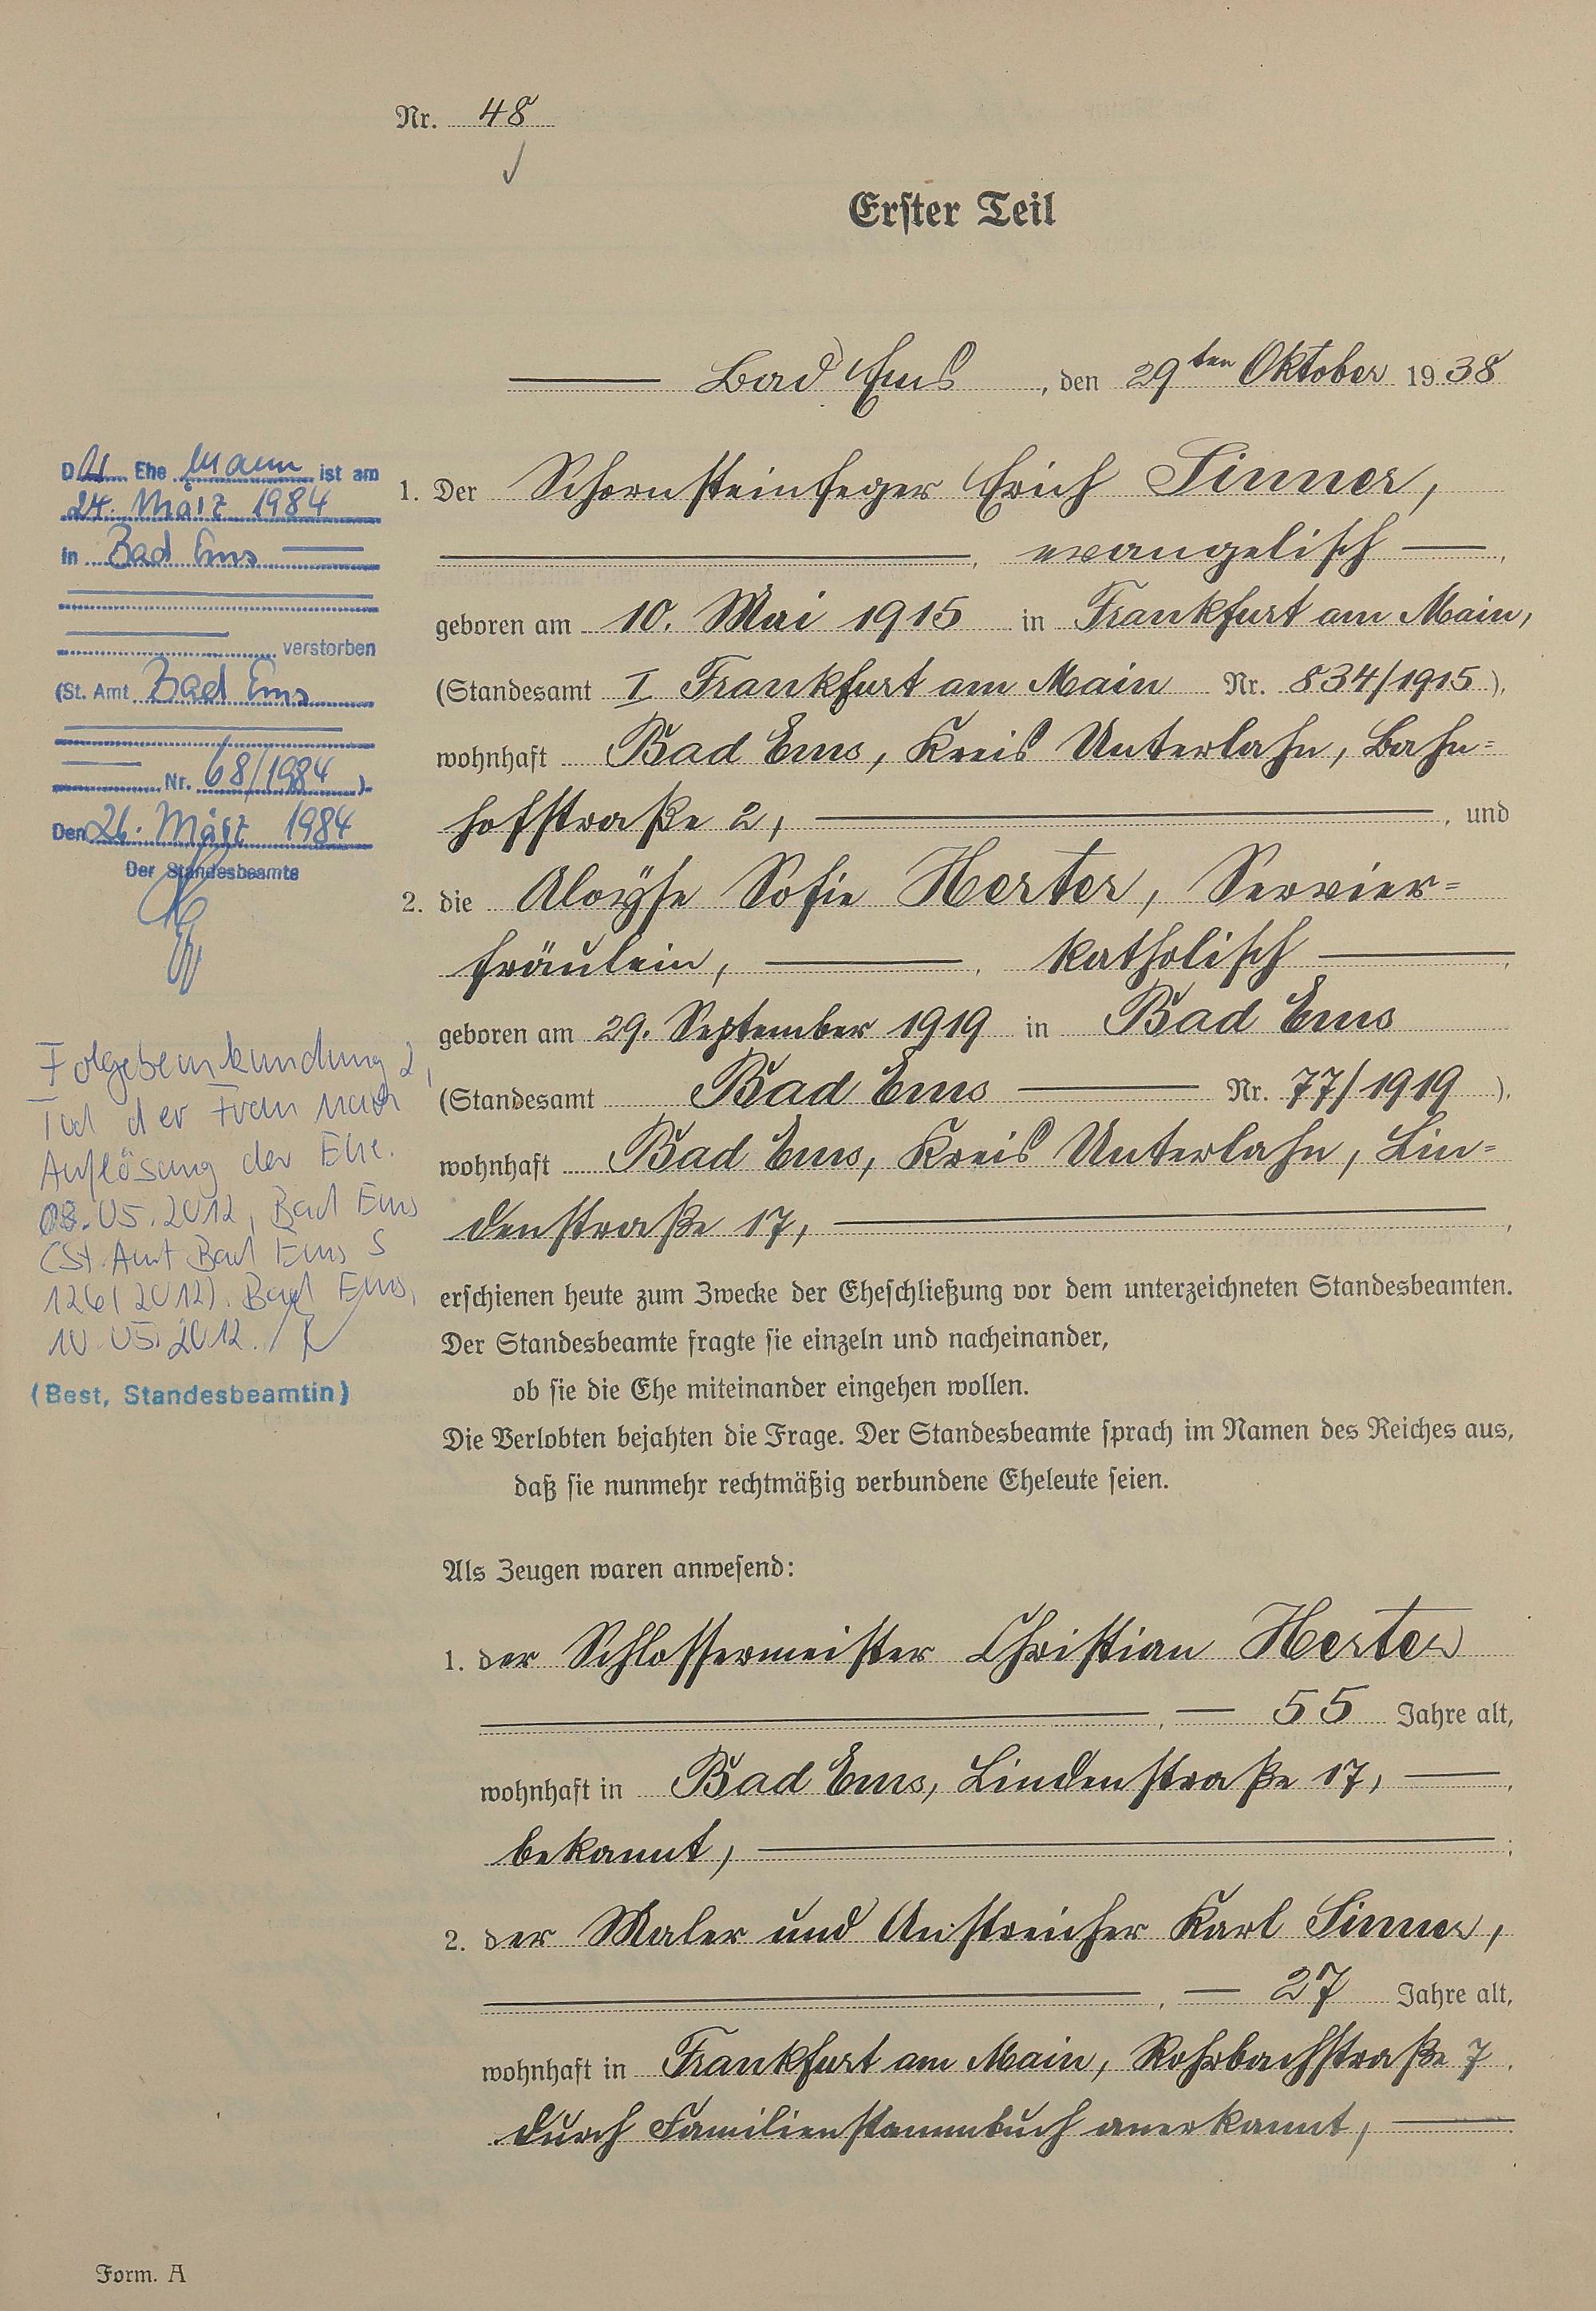 Nr. 48
Erster Teil
Bad Ems, den 29ten Oktober 1938
1. Der Schornsteinfeger Erich Sinner,
evangelisch
geboren am 10. Mai 1915 in Frankfurt am Main,
(Standesamt I Frankfurt am Main Nr. 834/1915),
wohnhaft Bad Ems, Kreis Unterlahn, Bahn=
hofstraße 2, und
2. die Aloyse Sofie Herter, Servier=
fräulein, katholisch
geboren am 29. September 1919 in Bad Ems
(Standesamt Bad Ems Nr. 77/1919),
wohnhaft Bad Ems, Kreis Unterlahn, Lin=
denstraße 17,
erschienen heute zum Zwecke der Eheschließung vor dem unterzeichneten Standesbeamten.
Der Standesbeamte fragte sie einzeln und nacheinander,
ob sie die Ehe miteinander eingehen wollen.
Die Verlobten bejahten die Frage. Der Standesbeamte sprach im Namen des Reiches aus,
daß sie nunmehr rechtmäßig verbundene Eheleute seien.
Als Zeugen waren anwesend:
1. der Schlossermeister Christian Herter
55 Jahre alt,
wohnhaft in Bad Ems, Lindenstraße 17,
bekannt,
2. der Maler und Anstreicher Karl Sinner,
27 Jahre alt,
wohnhaft in Frankfurt am Main, Rohrbachstraße 7
durch Familienstammbuch anerkannt,
Der Ehemann ist am
24. März 1984
in Bad Ems
verstorben
(St. Amt Bad Ems
Nr. 68/1984).
Den 26. März 1984
Der Standesbeamte
Folgebeurkundung 2,
Tod der Frau nach
Auflösung der Ehe.
08.05.2012, Bad Ems
(St. Amt Bad Ems S
126/2012). Bad Ems,
10.05.2012.
(Best, Standesbeamtin)
Form. A